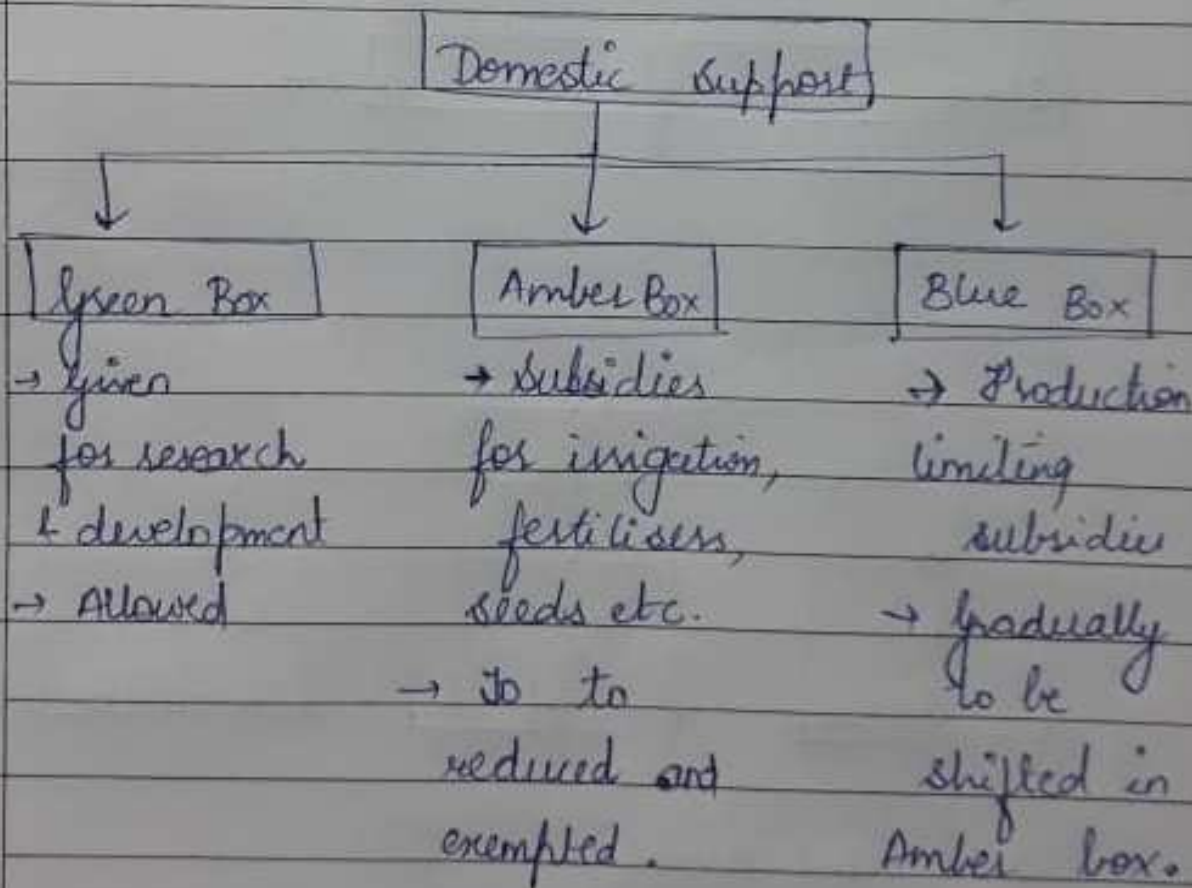 Domestic support
Green Box
→ Given
for research
& development
→ Allowed
Amber Box
→ Subsidies
for irrigation,
fertilisers,
seeds etc.
→ To to
reduced and
exempted.
Blue Box
→ Production
limiting
subsidies
→ Gradually
to be
shifted in
Amber box.